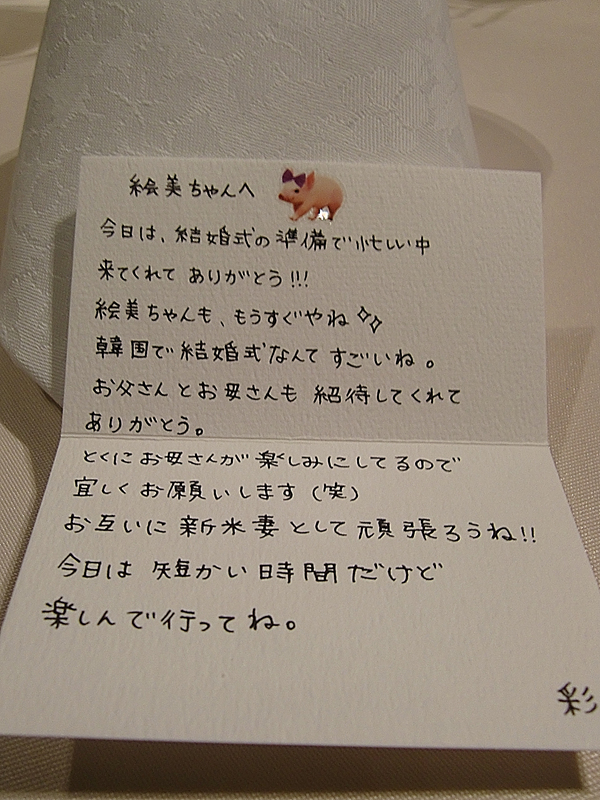 絵美ちゃんへ
今日は、結婚式の準備で忙しい中
来てくれて ありがとう!!!
絵美ちゃんも、もうすぐやね
韓国で結婚式なんて すごいね。
お父さんとお母さんも 招待してくれて
ありがとう。
とくにお母さんが楽しみにしてるので
宜しくお願いします(笑)
お互いに 新米妻として頑張ろうね!!
今日は 短かい時間だけど
楽しんで行ってね。
彩